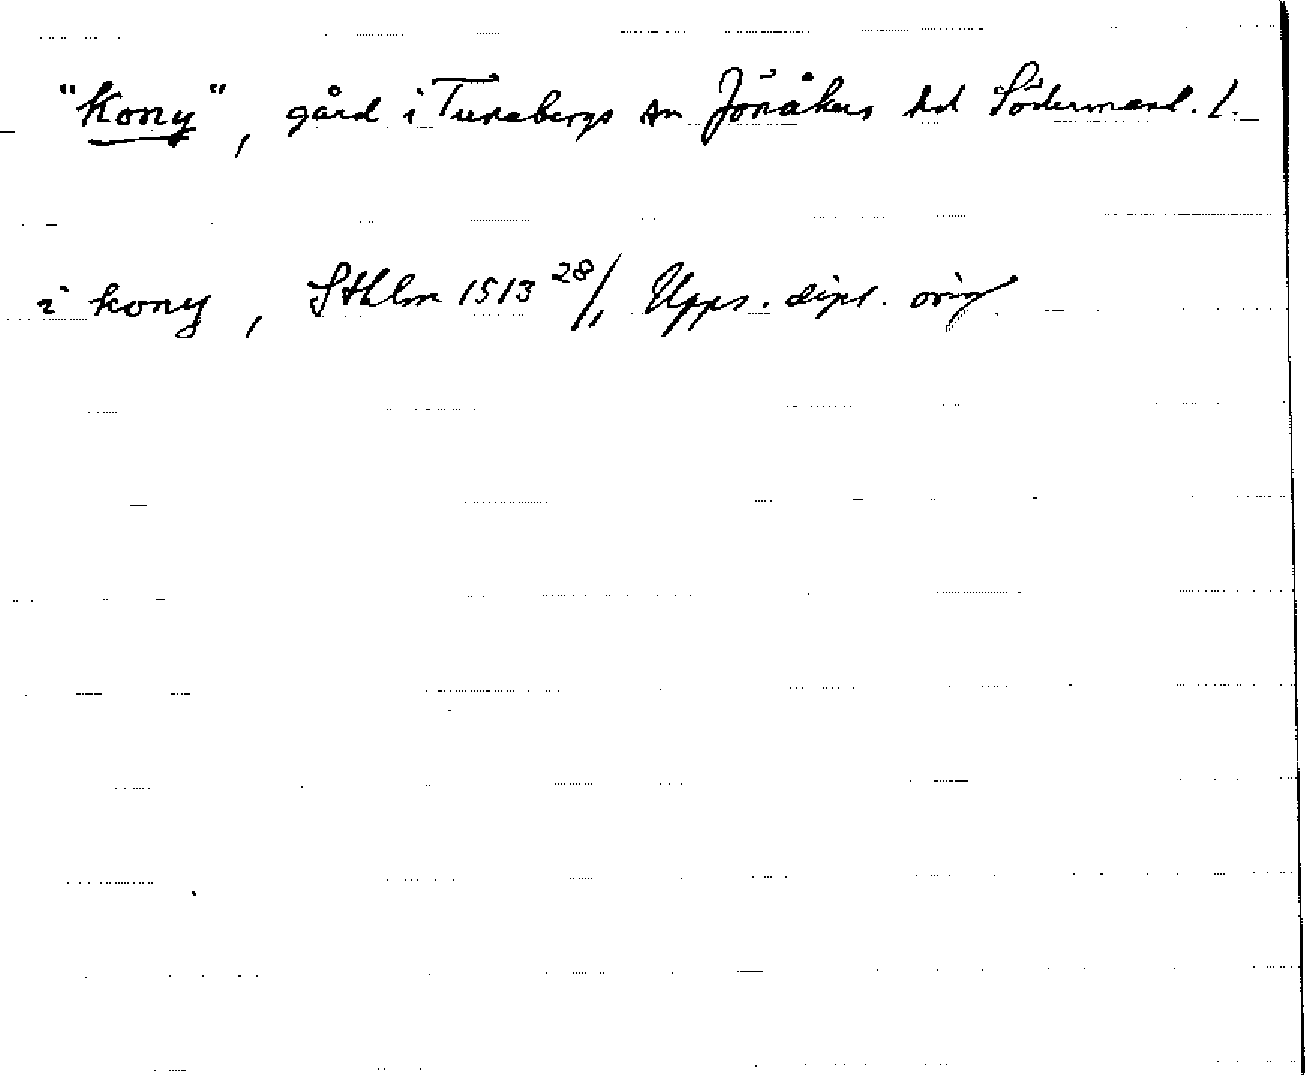 "Kony", gård i Tunabergs sn Jönåkers hd Södermanl. l.
i kony, Sthlm 1513 28/1, Upps. dipl. orig.